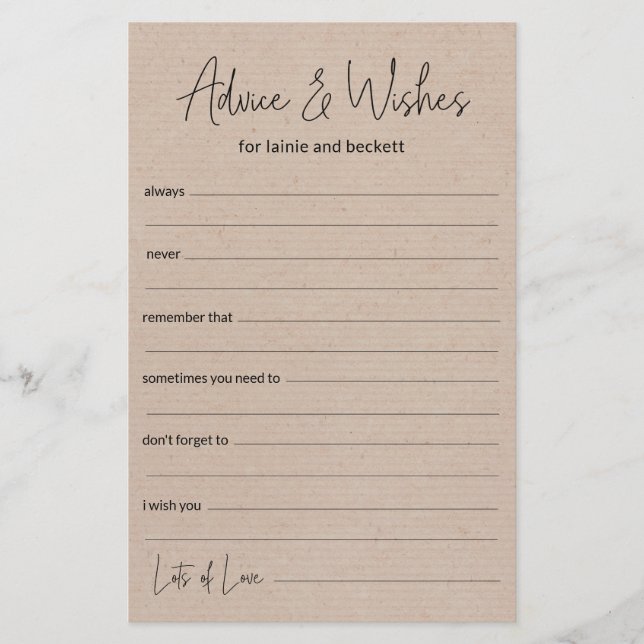 Advice & Wishes
for lainie and beckett
always
never
remember that
sometimes you need to
don't forget to
i wish you
Lots of Love